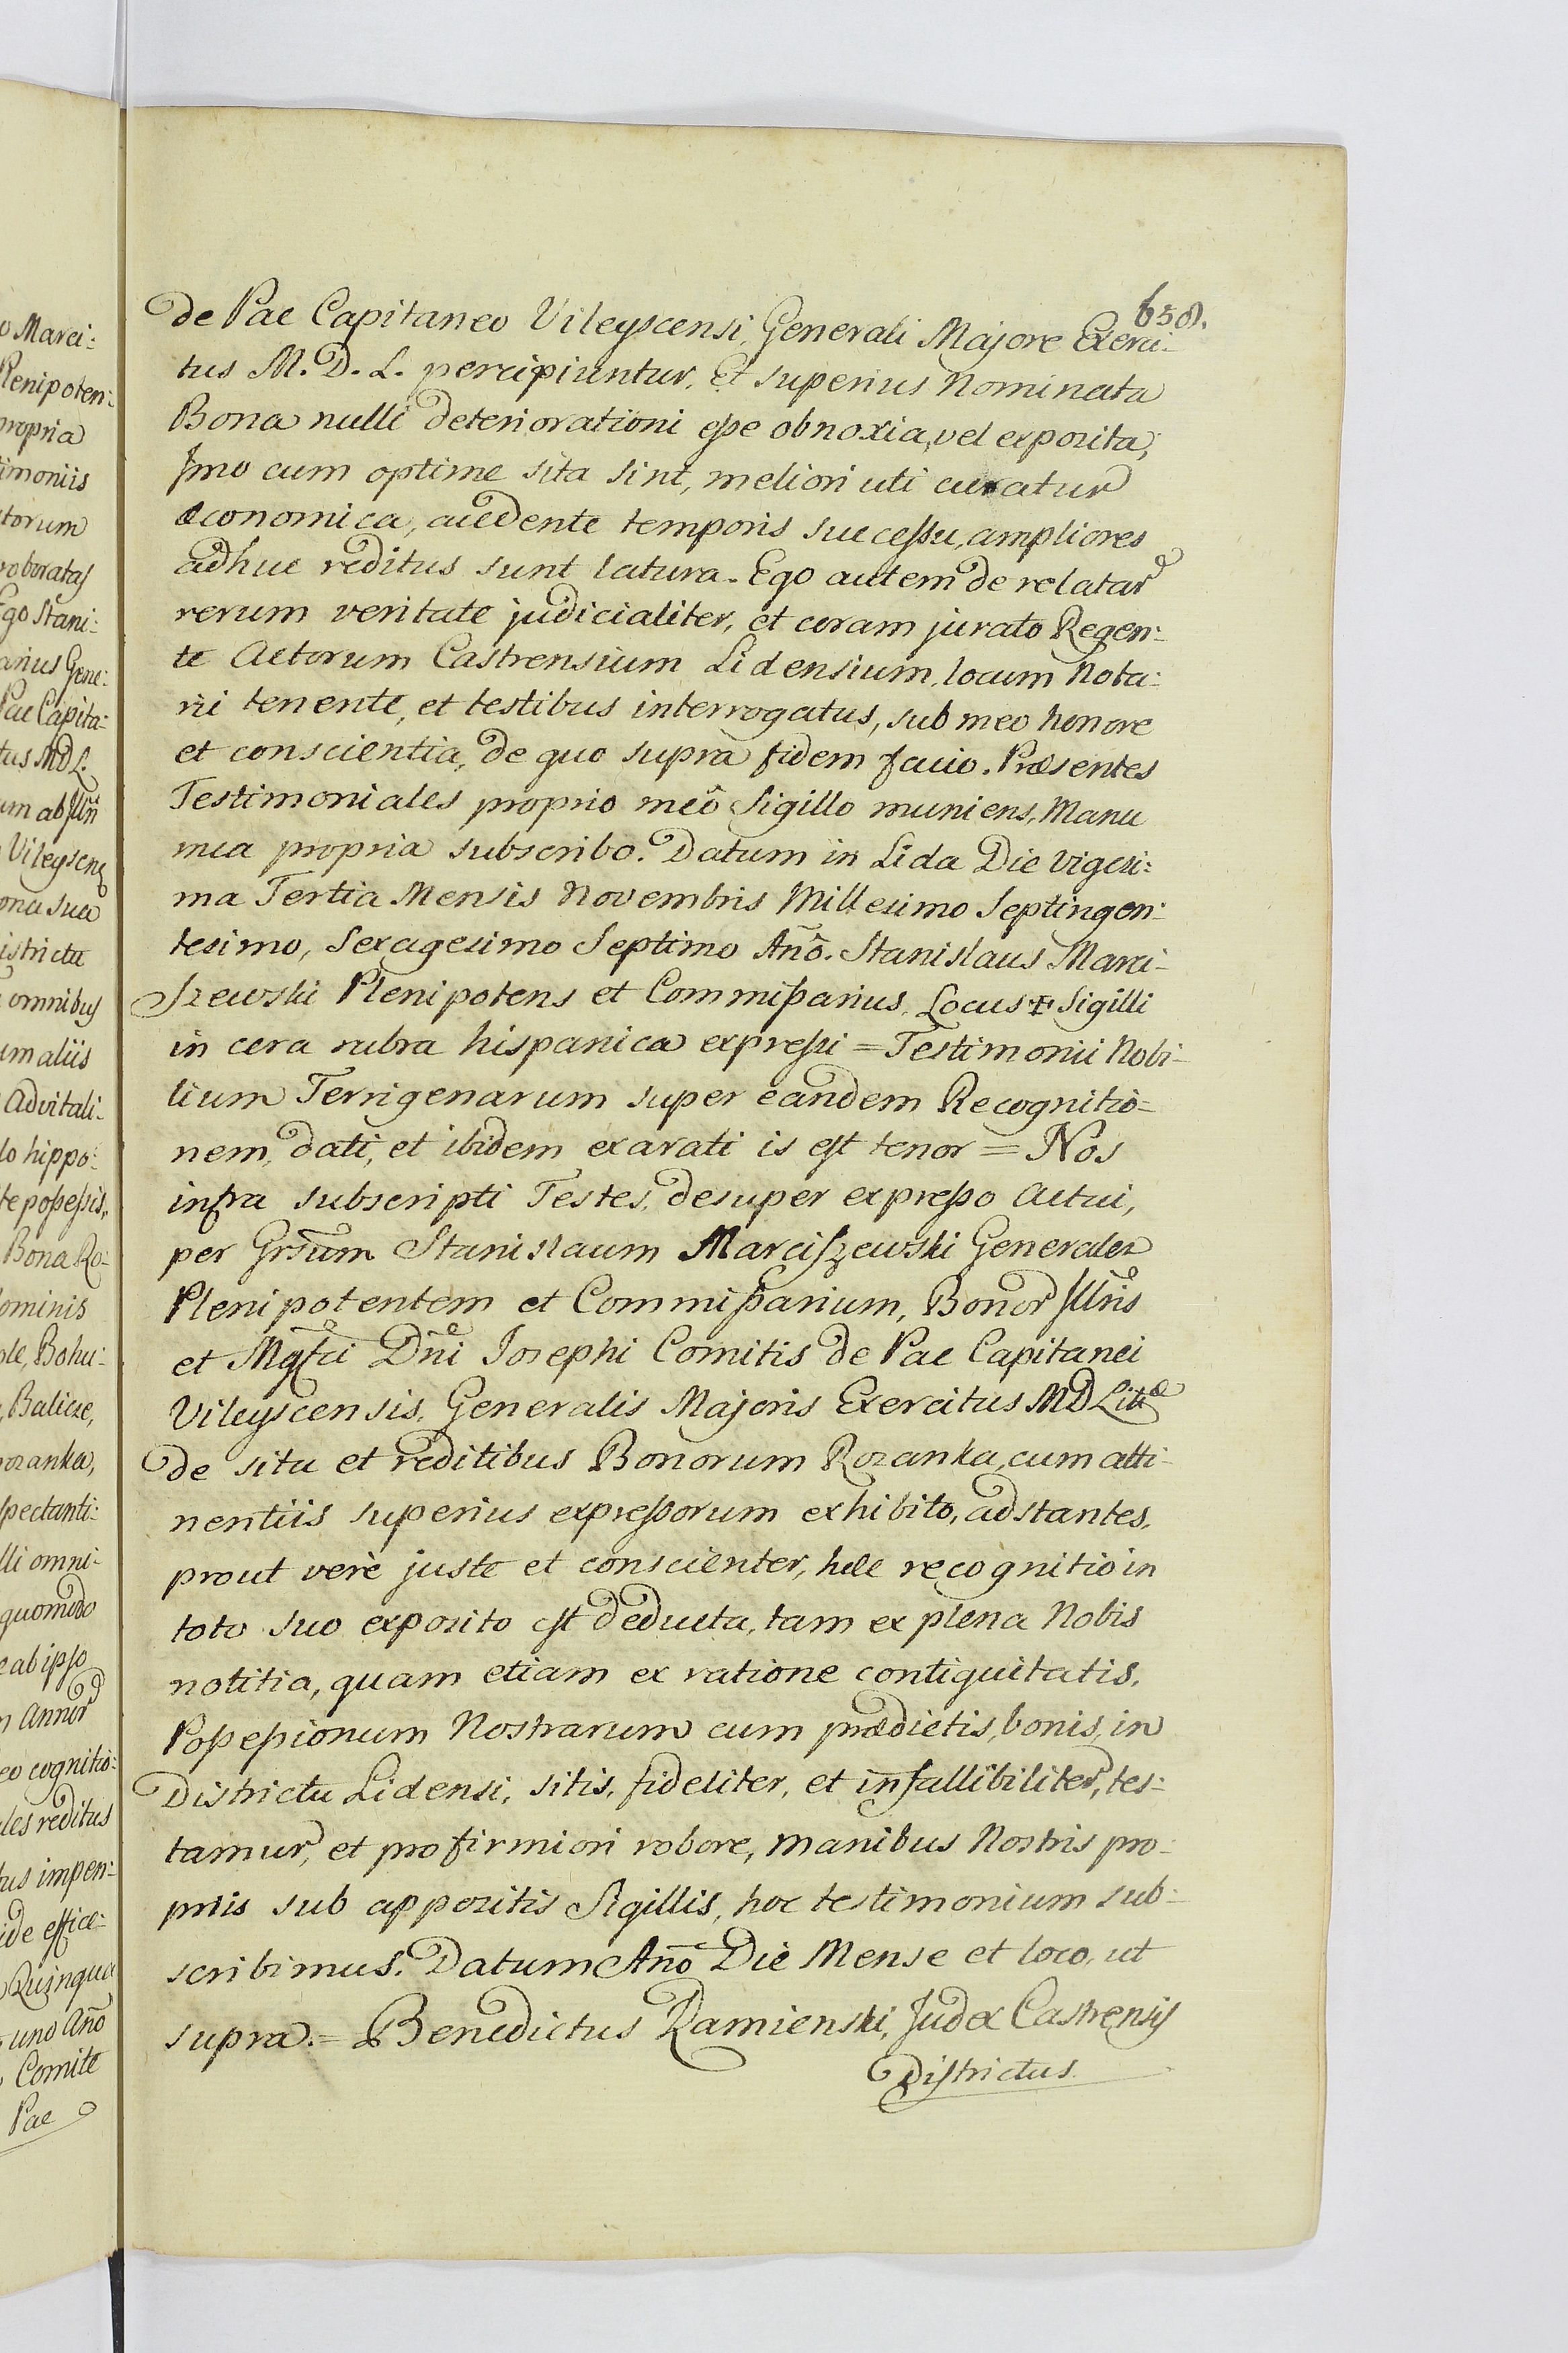 658.
de Pac Capitaneo Vileyscensi, Generali Majore Exerci-
tus M. D. L. percipiuntur. Et superius Nominata
Bona nulli deteriorationi eſse obnoxia, vel exposita,
Imo cum optime sita sint, meliori uti curatur
œconomica, accedente temporis succeſsu, ampliores
adhuc reditus sunt latura. Ego autem de relatar
rerum veritate judicialiter, et coram jurato Regen:
te Actorum Castrensium Lidensium, locum Nota:
rii tenente, et testibus interrogatus, sub meo honore
et conscientia, de quo supra fidem facio. Præsentes
Testimoniales proprio meô Sigillo muniens, Manu
mea propria subscribo. Datum in Lida Die Vigesi:
ma Tertia Mensis Novembris Millesimo Septingen:
tesimo, Sexagesimo Septimo Añô. Stanislaus Marci-
szewski Plenipotens et Commiſsarius. Locus ✠ Sigilli
in cera rubra hispanica expreſsi = Testimonii Nobi-
lium Terrigenarum super eandem Recognitio=
nem, dati, et ibidem exarati is est tenor = Nos
infra subscripti Testes, desuper expreſso Actui,
per Grsum Stanislaum Marciszewski Generalem
Plenipotentem et Commiſsarium, Bonor Illris
et Mgfci Dñi Josephi Comitis de Pac Capitanei
Vileyscensis, Generalis Majoris Exercitus MD Litt
de situ et reditibus Bonorum Rozanka, cum atti-
nentiis superius expreſsorum exhibito, adstantes,
prout verè juste et conscienter, hæc recognitio in
toto suo exposito est deducta, tam ex plena Nobis
notitia, quam etiam ex ratione contiguitatis,
Poſseſsionum Nostrarum cum prædictis, bonis, in
Districtu Lidensi, sitis, fideliter, et infallibiliter, tes:
tamur, et pro firmiori robore, manibus Nostris pro:
priis sub appositis Sigillis, hoc testimonium sub:
scribimus. Datum Añō Die Mense et loco, ut
supra. = Benedictus Kamienski, Judex Castrensis
Districtus